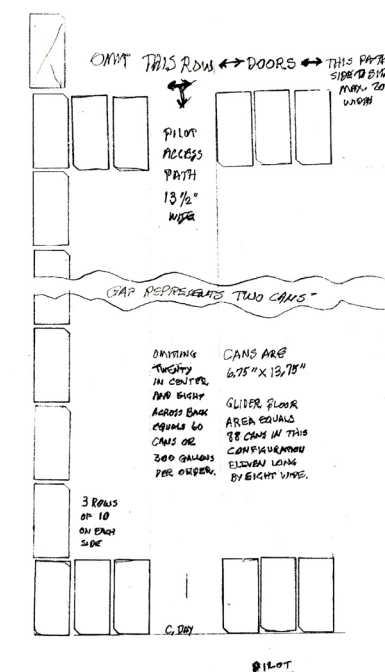 OMIT THIS ROW ↔ DOORS ↔ THIS PATH
SIDE TO SIDE
MAX. 20
WIDTH
PILOT
ACCESS
PATH
13½"
WIDE
GAP REPRESENTS TWO CANS-
OMITING
TWENTY
IN CENTER
AND EIGHT
ACROSS BACK
EQUALS 60
CANS OR
300 GALLONS
PER ORDER.
CANS ARE
6.75" X 13.75"
GLIDER FLOOR
AREA EQUALS
88 CANS IN THIS
CONFIGURATION
ELEVEN LONG
BY EIGHT WIDE.
3 ROWS
OF 10
ON EACH
SIDE
C. DAY
PILOT